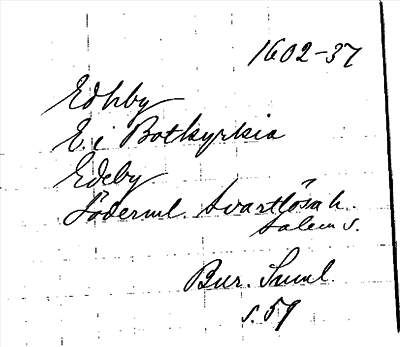 1602-37
Edhby
E. i Botkyrkia
Edeby
Söderml. Svartlösa h.
Salem s.
Bur. Suml.
s. 59